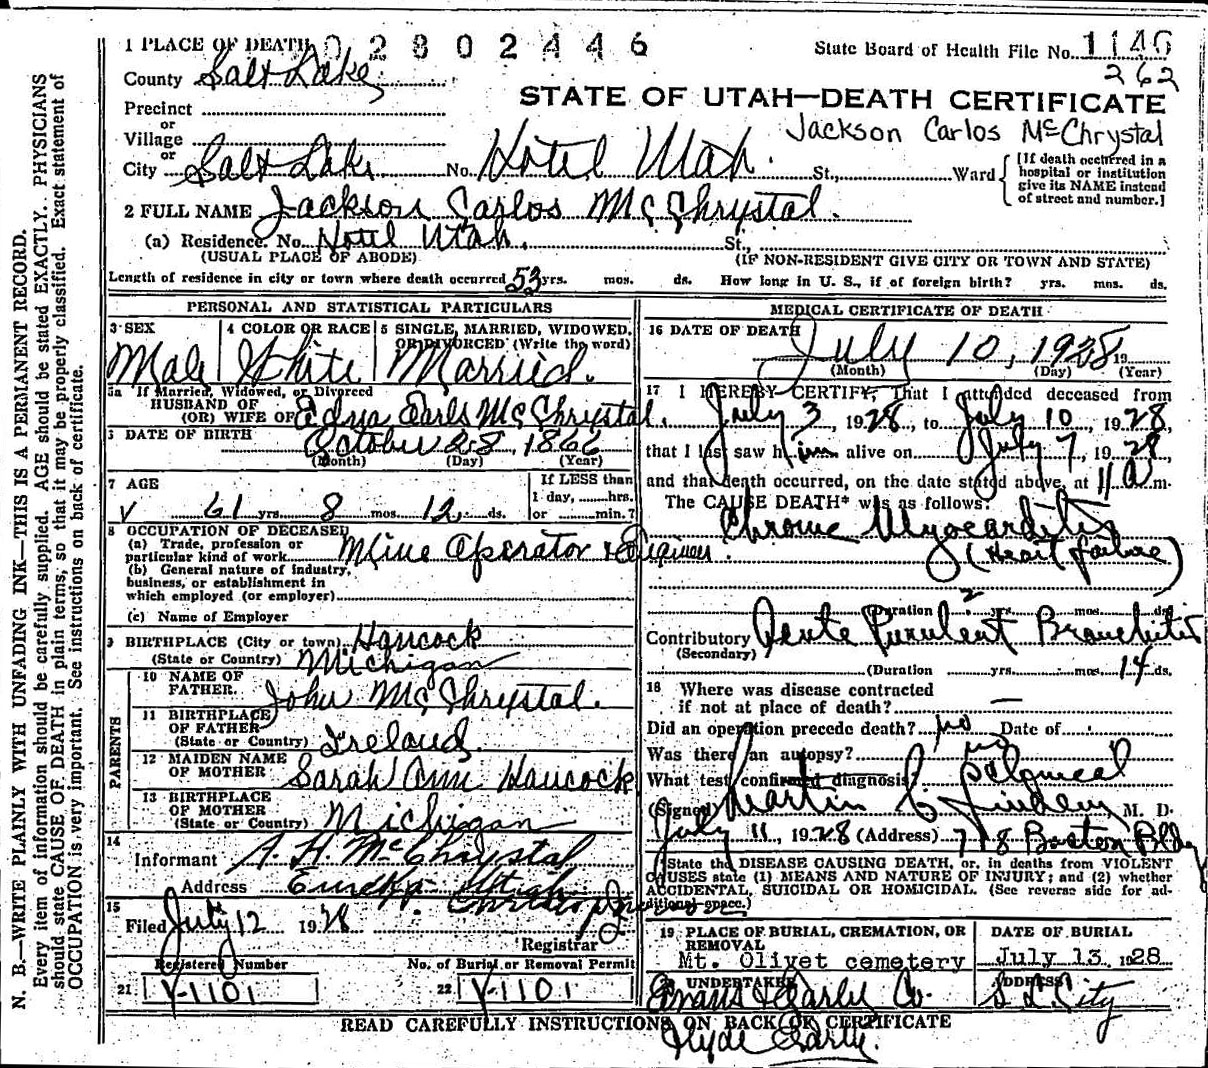 1 PLACE OF DEATH 02802446
State Board of Health File No. 1146
262
County Salt Lake
STATE OF UTAH—DEATH CERTIFICATE
Precinct
or
Village
Jackson Carlos McChrystal
or
City Salt Lake No. Hotel Utah. St., Ward
[If death occurred in a hospital or institution give its NAME instead of street and number.]
2 FULL NAME Jackson Carlos McChrystal.
(a) Residence. No. Hotel Utah. St.,
(USUAL PLACE OF ABODE) (IF NON-RESIDENT GIVE CITY OR TOWN AND STATE)
Length of residence in city or town where death occurred 53 yrs. mos. ds. How long in U. S., if of foreign birth? yrs. mos. ds.
PERSONAL AND STATISTICAL PARTICULARS
3 SEX
Male
4 COLOR OR RACE
White
5 SINGLE, MARRIED, WIDOWED, OR DIVORCED (Write the word)
Married.
5a If Married, Widowed, or Divorced
HUSBAND OF
(OR) WIFE OF Edna Earls McChrystal.
6 DATE OF BIRTH
October 28, 1866
(Month) (Day) (Year)
7 AGE
61 yrs. 8 mos. 12 ds.
If LESS than
1 day, hrs.
or min.?
8 OCCUPATION OF DECEASED
(a) Trade, profession or
particular kind of work Mine Operator
(b) General nature of industry,
business, or establishment in
which employed (or employer)
(c) Name of Employer
9 BIRTHPLACE (City or town) Hancock
(State or Country) Michigan
PARENTS
10 NAME OF
FATHER. John McChrystal.
11 BIRTHPLACE
OF FATHER
(State or Country) Ireland.
12 MAIDEN NAME
OF MOTHER Sarah Ann Hancock
13 BIRTHPLACE
OF MOTHER
(State or Country) Michigan
14
Informant A. H. McChrystal
Address Eureka Utah
15
Filed July 12 1928
Registrar
Registered Number
21 Y-1101
No. of Burial or Removal Permit
22 Y-1101
MEDICAL CERTIFICATE OF DEATH
16 DATE OF DEATH
July 10, 1928 19
(Month) (Day) (Year)
17 I HEREBY CERTIFY, That I attended deceased from
July 3, 1928, to July 10, 1928,
that I last saw him alive on July 7, 1928
and that death occurred, on the date stated above, at 11 A m.
The CAUSE DEATH* was as follows:
Chronic Myocarditis
(Heart failure)
(Duration ? yrs. mos. ds.
Contributory Acute Purulent Bronchitis
(Secondary)
(Duration yrs. mos. 14 ds.
18 Where was disease contracted
if not at place of death? —
Did an operation precede death? no Date of
Was there an autopsy? no
What test confirmed diagnosis?
(Signed) Martin C. Lindem M. D.
July 11, 1928 (Address) 718 Boston Bldg
*State the DISEASE CAUSING DEATH, or, in deaths from VIOLENT
CAUSES state (1) MEANS AND NATURE OF INJURY; and (2) whether
ACCIDENTAL, SUICIDAL OR HOMICIDAL. (See reverse side for ad-
ditional space.)
19 PLACE OF BURIAL, CREMATION, OR
REMOVAL
Mt. Olivet cemetery
DATE OF BURIAL
July 13, 1928
UNDERTAKER
Evans & Early Co.
ADDRESS
S L City
READ CAREFULLY INSTRUCTIONS ON BACK OF CERTIFICATE
Clyde Early.
N. B.—WRITE PLAINLY WITH UNFADING INK—THIS IS A PERMANENT RECORD.
Every item of information should be carefully supplied. AGE should be stated EXACTLY. PHYSICIANS
should state CAUSE OF DEATH in plain terms, so that it may be properly classified. Exact statement of
OCCUPATION is very important. See instructions on back of certificate.